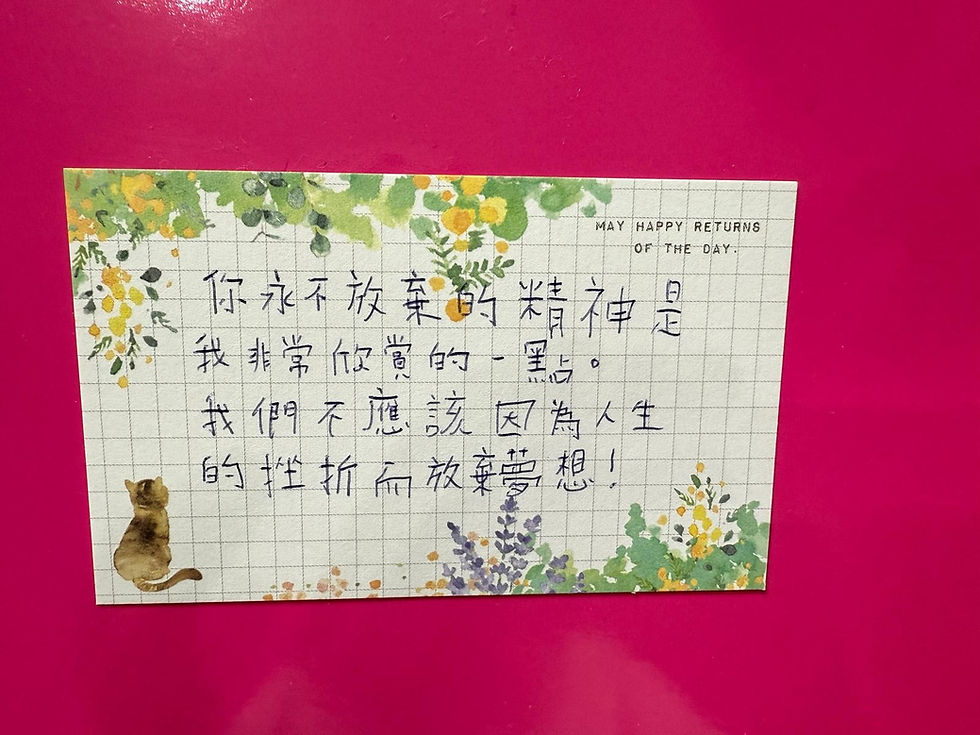 MAY HAPPY RETURNS
OF THE DAY.
你永不放棄的精神是
我非常欣賞的一點。
我們不應該因為人生
的挫折而放棄夢想!